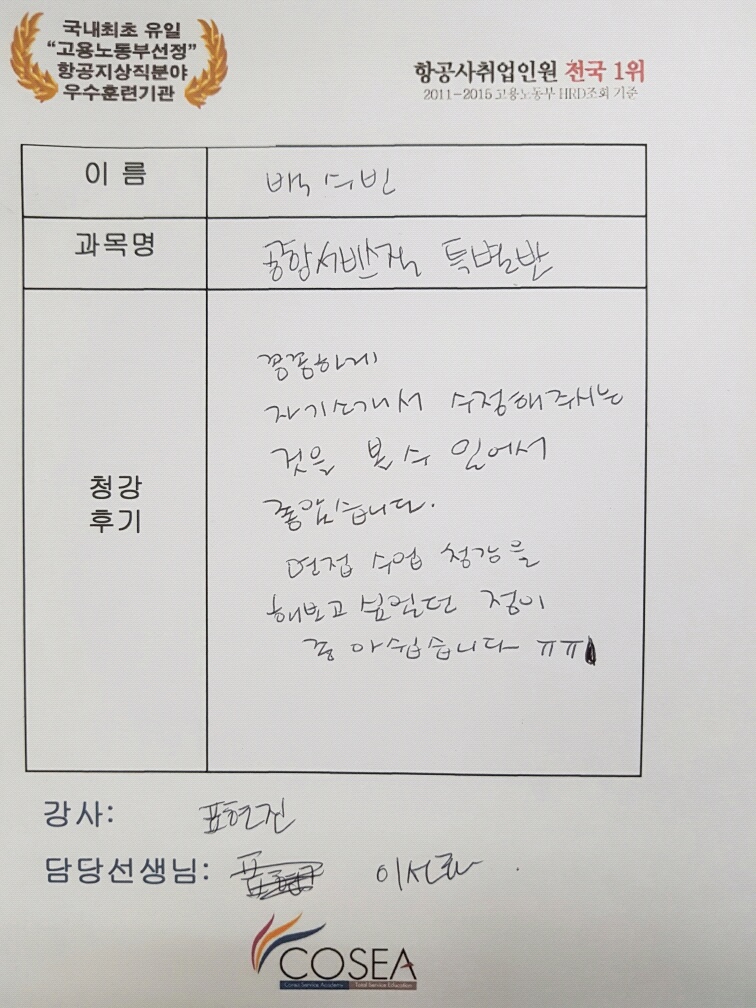 국내최초 유일
“고용노동부선정”
항공지상직분야
우수훈련기관
항공사취업인원 전국 1위
2011-2015 고용노동부 HRD조회 기준
이 름
백수빈
과목명
공항서비스직 특별반
청강
후기
꼼꼼하게
자기소개서 수정해주시는
것을 볼 수 있어서
좋았습니다.
면접 수업 청강을
해보고 싶었던 점이
좀 아쉽습니다 ㅠㅠ
강사: 표현진
담당선생님: 이선화
COSEA
Corea Service Academy Total Service Education